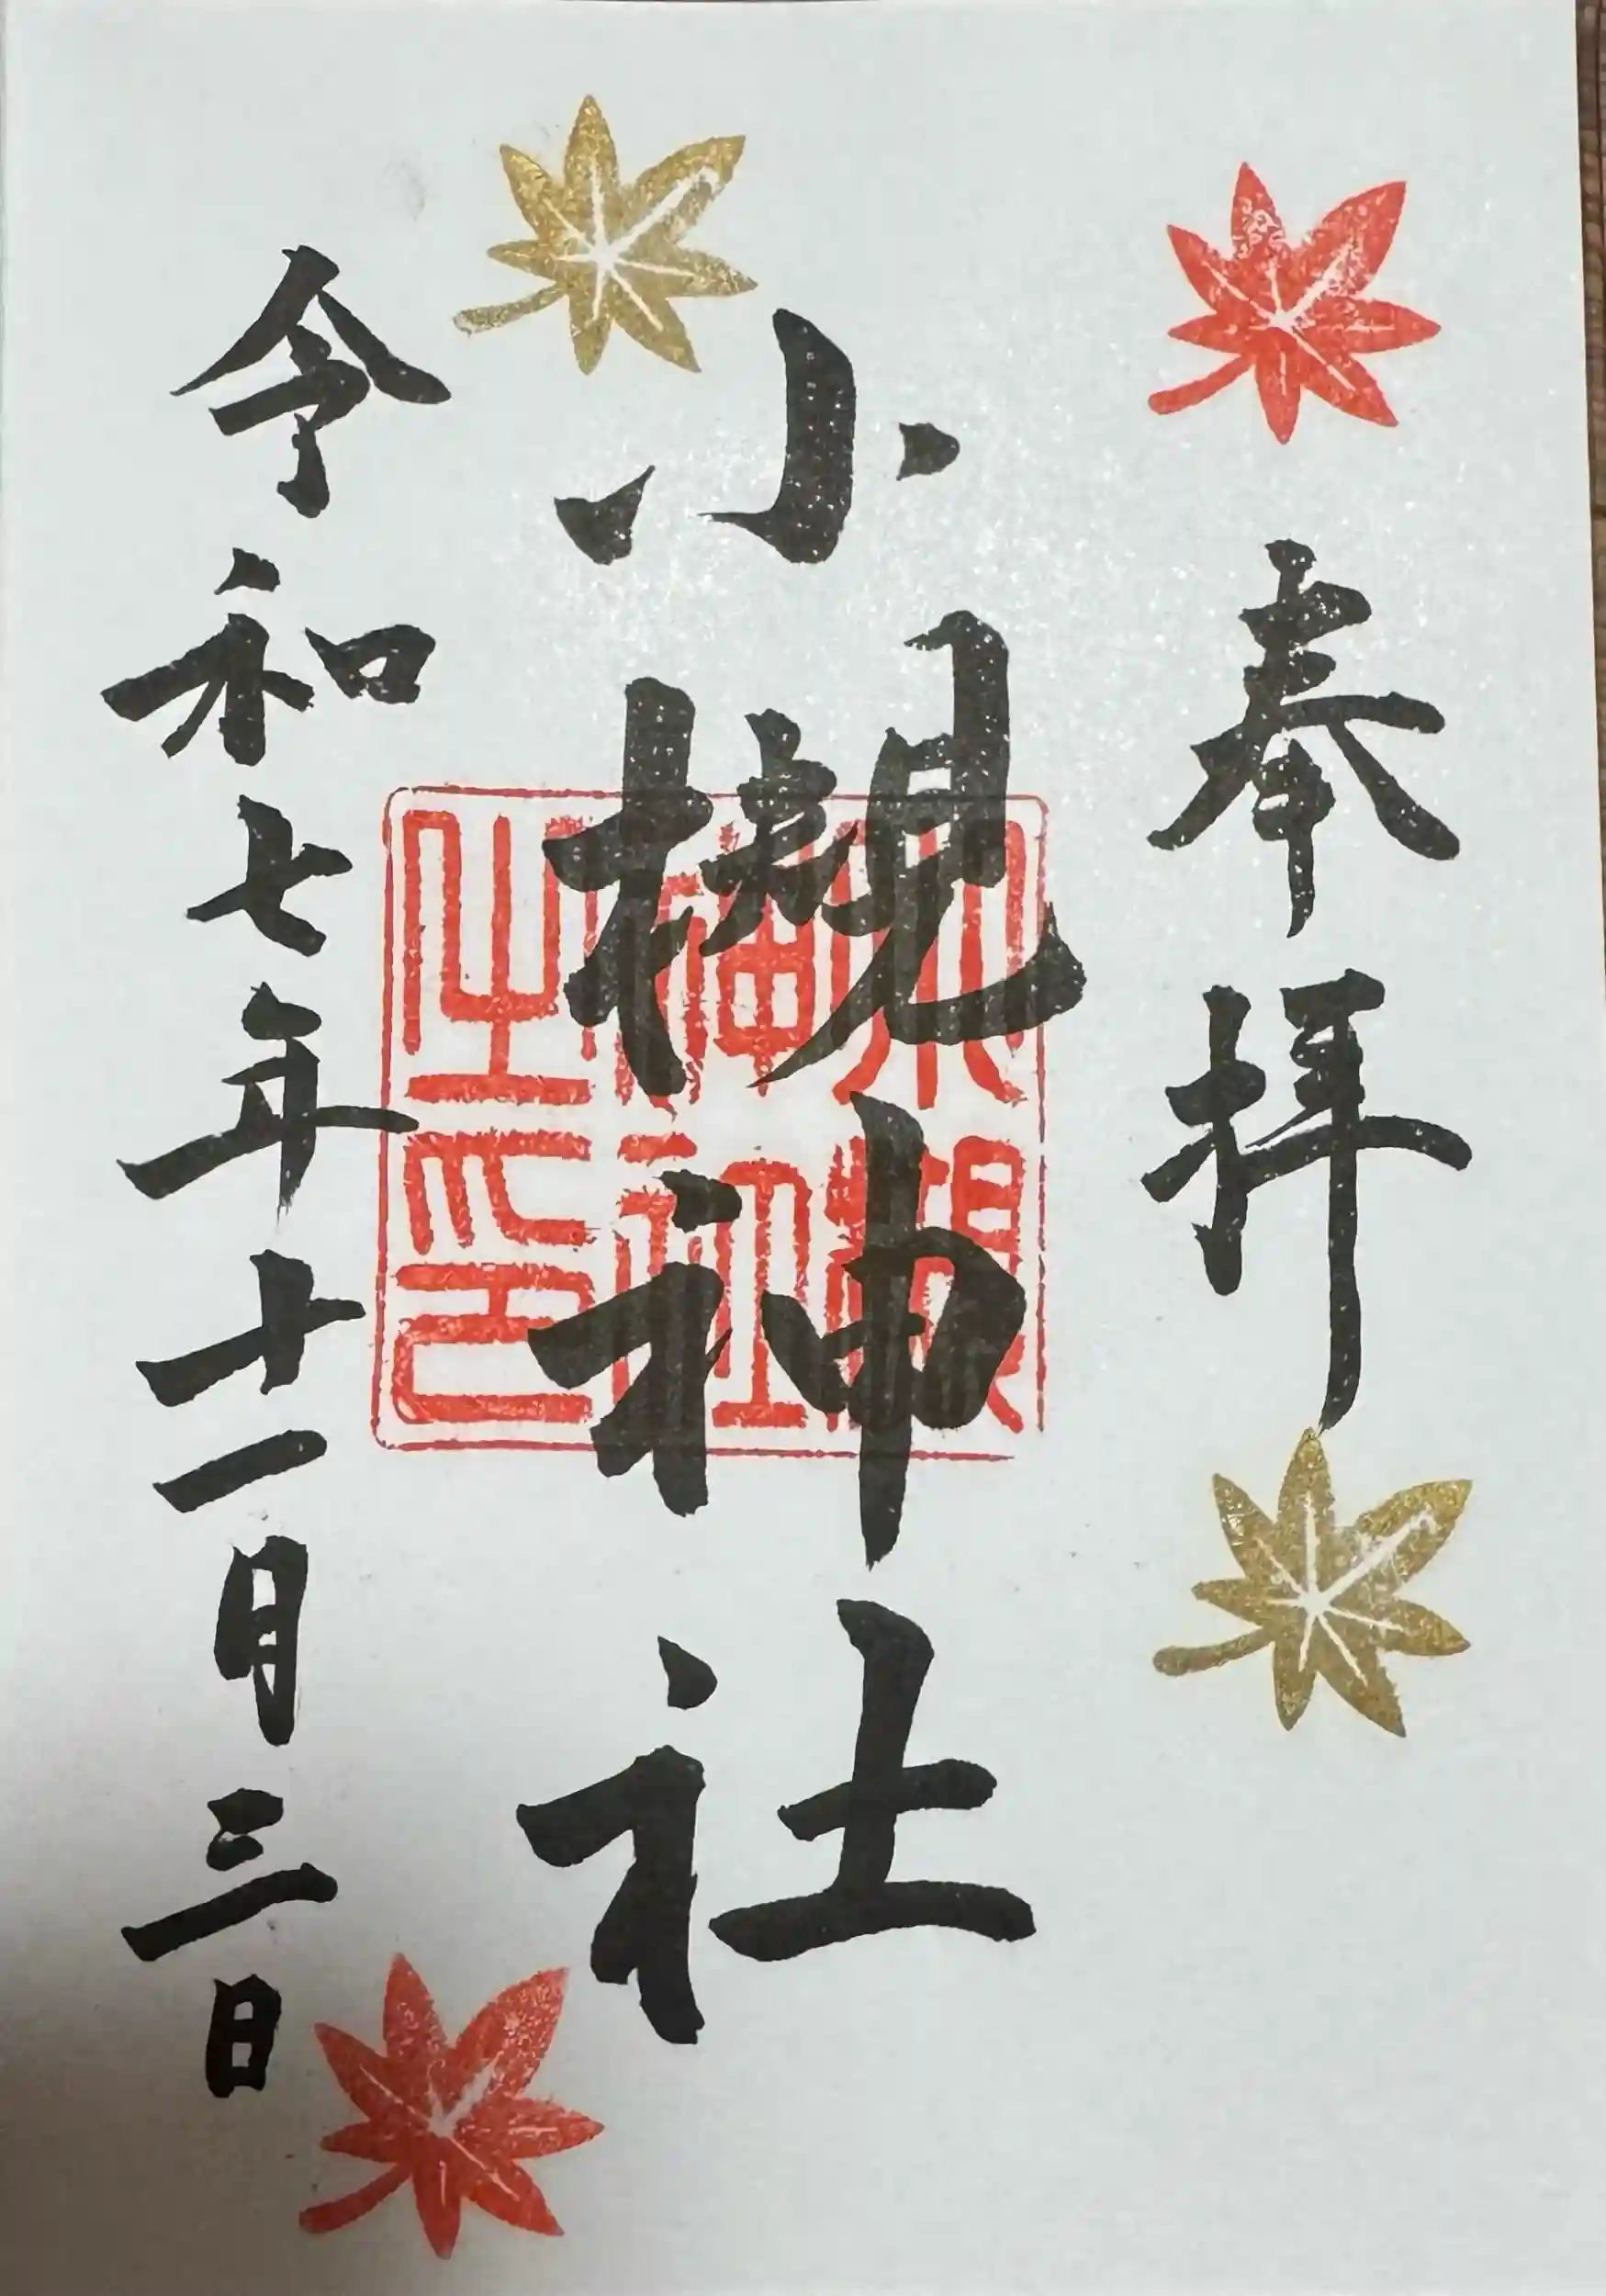 奉拝
小槻神社
小槻
神社
之印
令和七年十一月三日